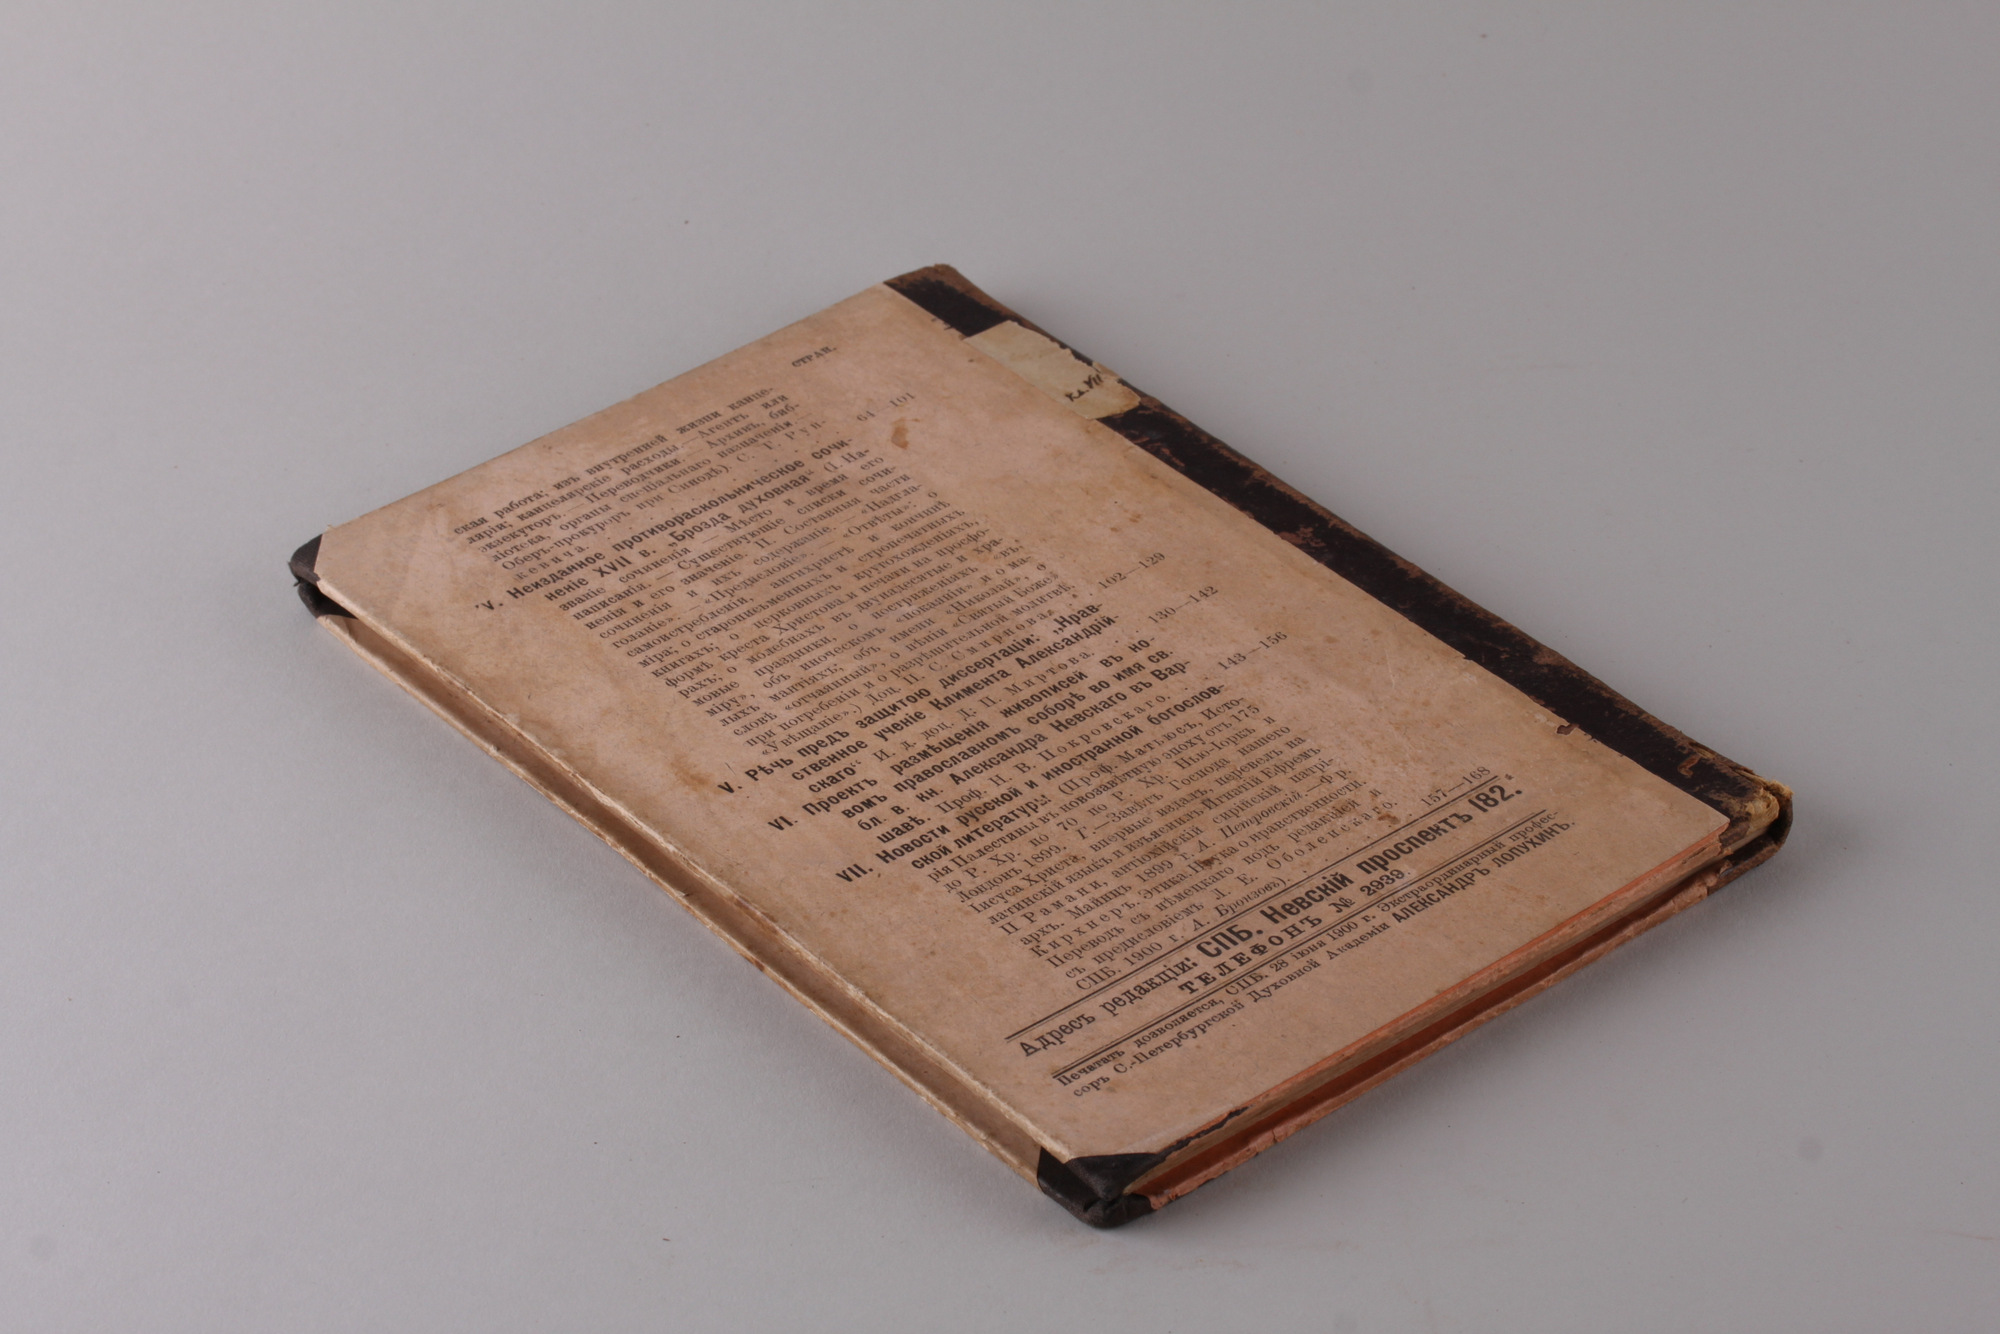 стран.
ская работа; изъ внутренней жизни канце-
ляріи; канцелярскіе расходы.—Агентъ или
экзекуторъ.—Переводчики.—Архивъ, биб-
ліотека, органы спеціальнаго назначенія.—
Оберъ-прокуроръ при Синодѣ). С. Г. Рун-
кевича. 64—101
V. Неизданное противораскольническое сочи-
неніе XVII в. „Брозда духовная“ (I. На-
званіе сочиненія — Мѣсто и время его
написанія. — Существующіе списки сочи-
ненія и его значеніе. II. Составныя части
сочиненія и ихъ содержаніе. — «Надгла-
голаніе».—«Предисловіе». — «Отвѣты»: о
самоистребленіи, антихристѣ и кончинѣ
міра; о старописьменныхъ и старопечатныхъ
книгахъ; о церковныхъ кругохожденіяхъ,
формѣ креста Христова и печати на просфо-
рахъ; о молебнахъ въ двунадесятые и хра-
мовые праздники, о постриженіяхъ «въ
міру», объ иноческомъ «покаяніи» и о ма-
лыхъ мантіяхъ; объ имени «Николай», о
словѣ «отчаянный», о пѣніи «Святый Боже»
при погребеніи и о разрѣшительной молитвѣ.
«Увѣщаніе».) Доц. П. С. Смирнова. 102—129
V. Рѣчь предъ защитою диссертаціи: „Нрав-
ственное ученіе Климента Александрій-
скаго“ И. д. доц. Д. П. Миртова. 130—142
VI. Проектъ размѣщенія живописей въ но-
вомъ православномъ соборѣ во имя св.
бл. в. кн. Александра Невскаго въ Вар-
шавѣ. Проф. Н. В. Покровскаго. 143—156
VII. Новости русской и иностранной богослов-
ской литературы (Проф. Матьюсъ, Исто-
рія Палестины въ новозавѣтную эпоху отъ 175
до Р. Хр. по 70 по Р. Хр. Нью-Іоркъ и
Лондонъ 1899. Г.—Завѣтъ Господа нашего
Іисуса Христа, впервые издалъ, перевелъ на
латинскій языкъ и изъяснилъ Игнатій Ефремъ
II Рамани, антіохійскій сирійскій патрі-
архъ. Майнцъ 1899 г. А. Петровскій.—Фр.
Кирхнеръ. Этика. Наука о нравственности.
Переводъ съ нѣмецкаго подъ редакціей и
съ предисловіемъ Л. Е. Оболенскаго.
СПБ. 1900 г. А. Бронзовъ). 157—168
Адресъ редакціи: СПБ. Невскій проспектъ 182.
ТЕЛЕФОНЪ № 2939.
Печатать дозволяется, СПБ. 28 іюня 1900 г. Экстраординарный профес-
соръ С.-Петербургской Духовной Академіи АЛЕКСАНДРЪ ЛОПУХИНЪ.
Кл. VII